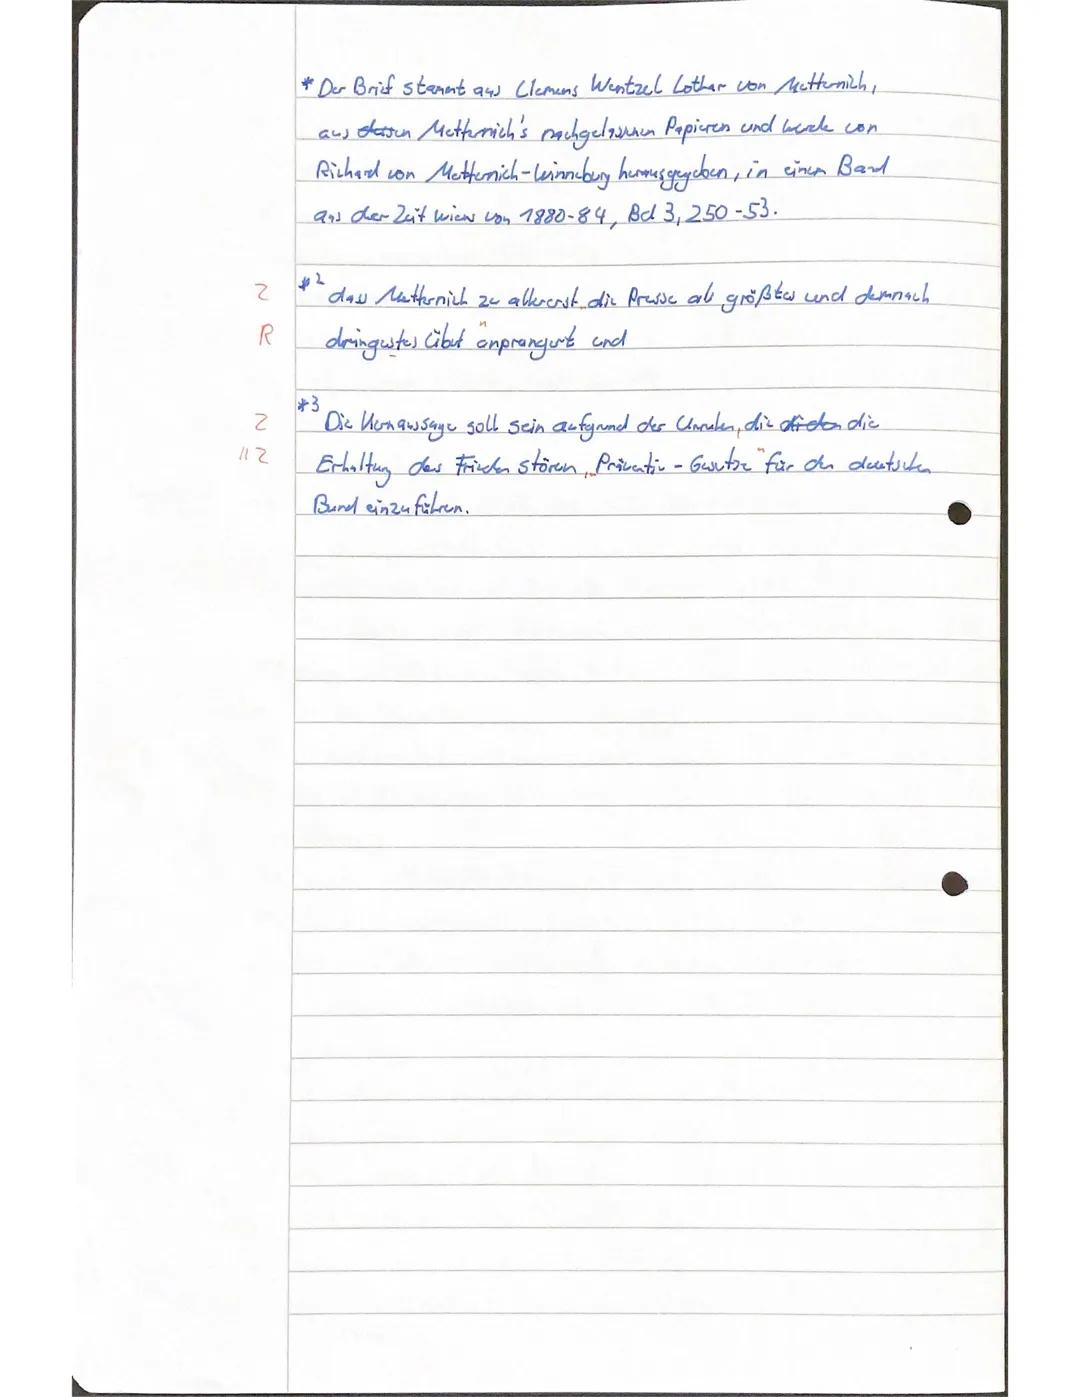 * Der Brief stammt aus Clemens Wentzel Lothar von Metternich,
aus dessen Metternich's nachgelassenen Papieren und wurde von
Richard von Metternich-Winneburg herausgegeben, in einem Band
aus der Zeit Wiens von 1880-84, Bd 3, 250-53.
Z *² dass Metternich zu allererst die Presse als größtes und demnach
R dringustes Übel anprangert und
Z *3 Die Kernaussage soll sein aufgrund der Unruhen, die die
"Z Erhaltung des Frieden stören „Präventiv-Gesetze" für den deutschen
Bund einzuführen.